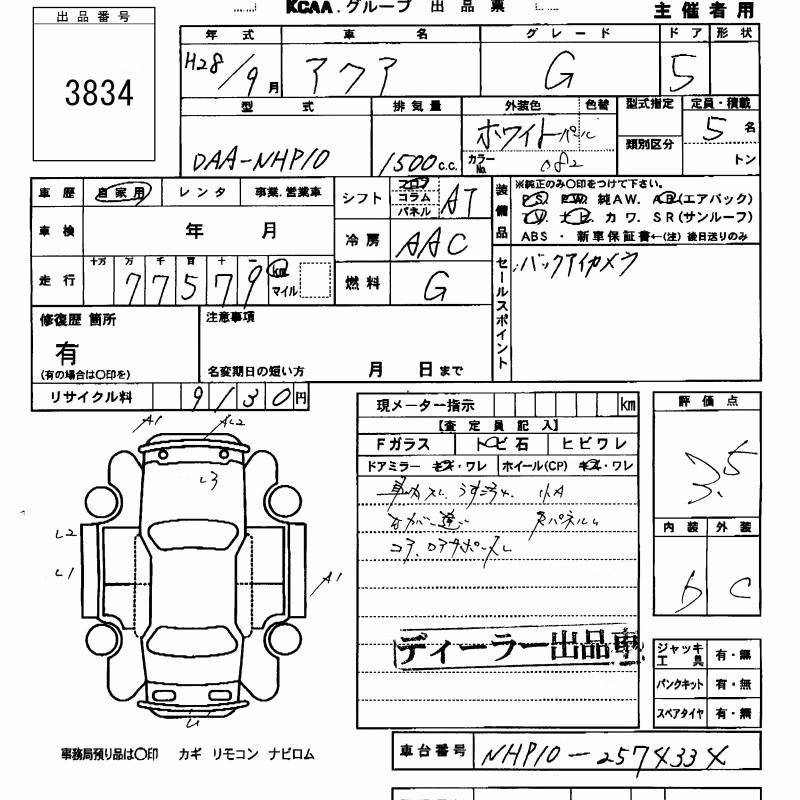 KCAA.グループ 出品票
主催者用
出品番号
3834
年式 車名 グレード ドア 形状
H28/9月 アクア G 5
型式 排気量 外装色 色替 型式指定 定員・積載
DAA-NHP10 1500c.c. ホワイトパール 類別区分 5名
カラーNo. 082 トン
車歴 自家用 レンタ 事業.営業車 シフト フロア コラム パネル AT
車検 年 月 冷房 AAC
走行 十万 万 千 百 十 一 77579 km マイル 燃料 G
装備品 ※純正のみ〇印をつけて下さい。
P.S. P.W. 純AW. A.B(エアバック)
T.V. ナビ カワ. SR(サンルーフ)
ABS ・ 新車保証書←(注) 後日送りのみ
セールスポイント バックアイカメラ
修復歴 箇所 注意事項
有
(有の場合は〇印を) 名変期日の短い方 月 日まで
リサイクル料 9130円
現メーター指示 km
【査定員記入】
Fガラス トビ石 ヒビワレ
ドアミラー キズ・ワレ ホイール(CP) キズ・ワレ
小A
コア.
ディーラー出品車
評価点
3.5
内装 外装
b C
A1 AL2
L3
L2
L1
A1
ジャッキ工具 有・無
パンクキット 有・無
スペアタイヤ 有・無
事務局預り品は〇印 カギ リモコン ナビロム
車台番号 NHP10-2574334